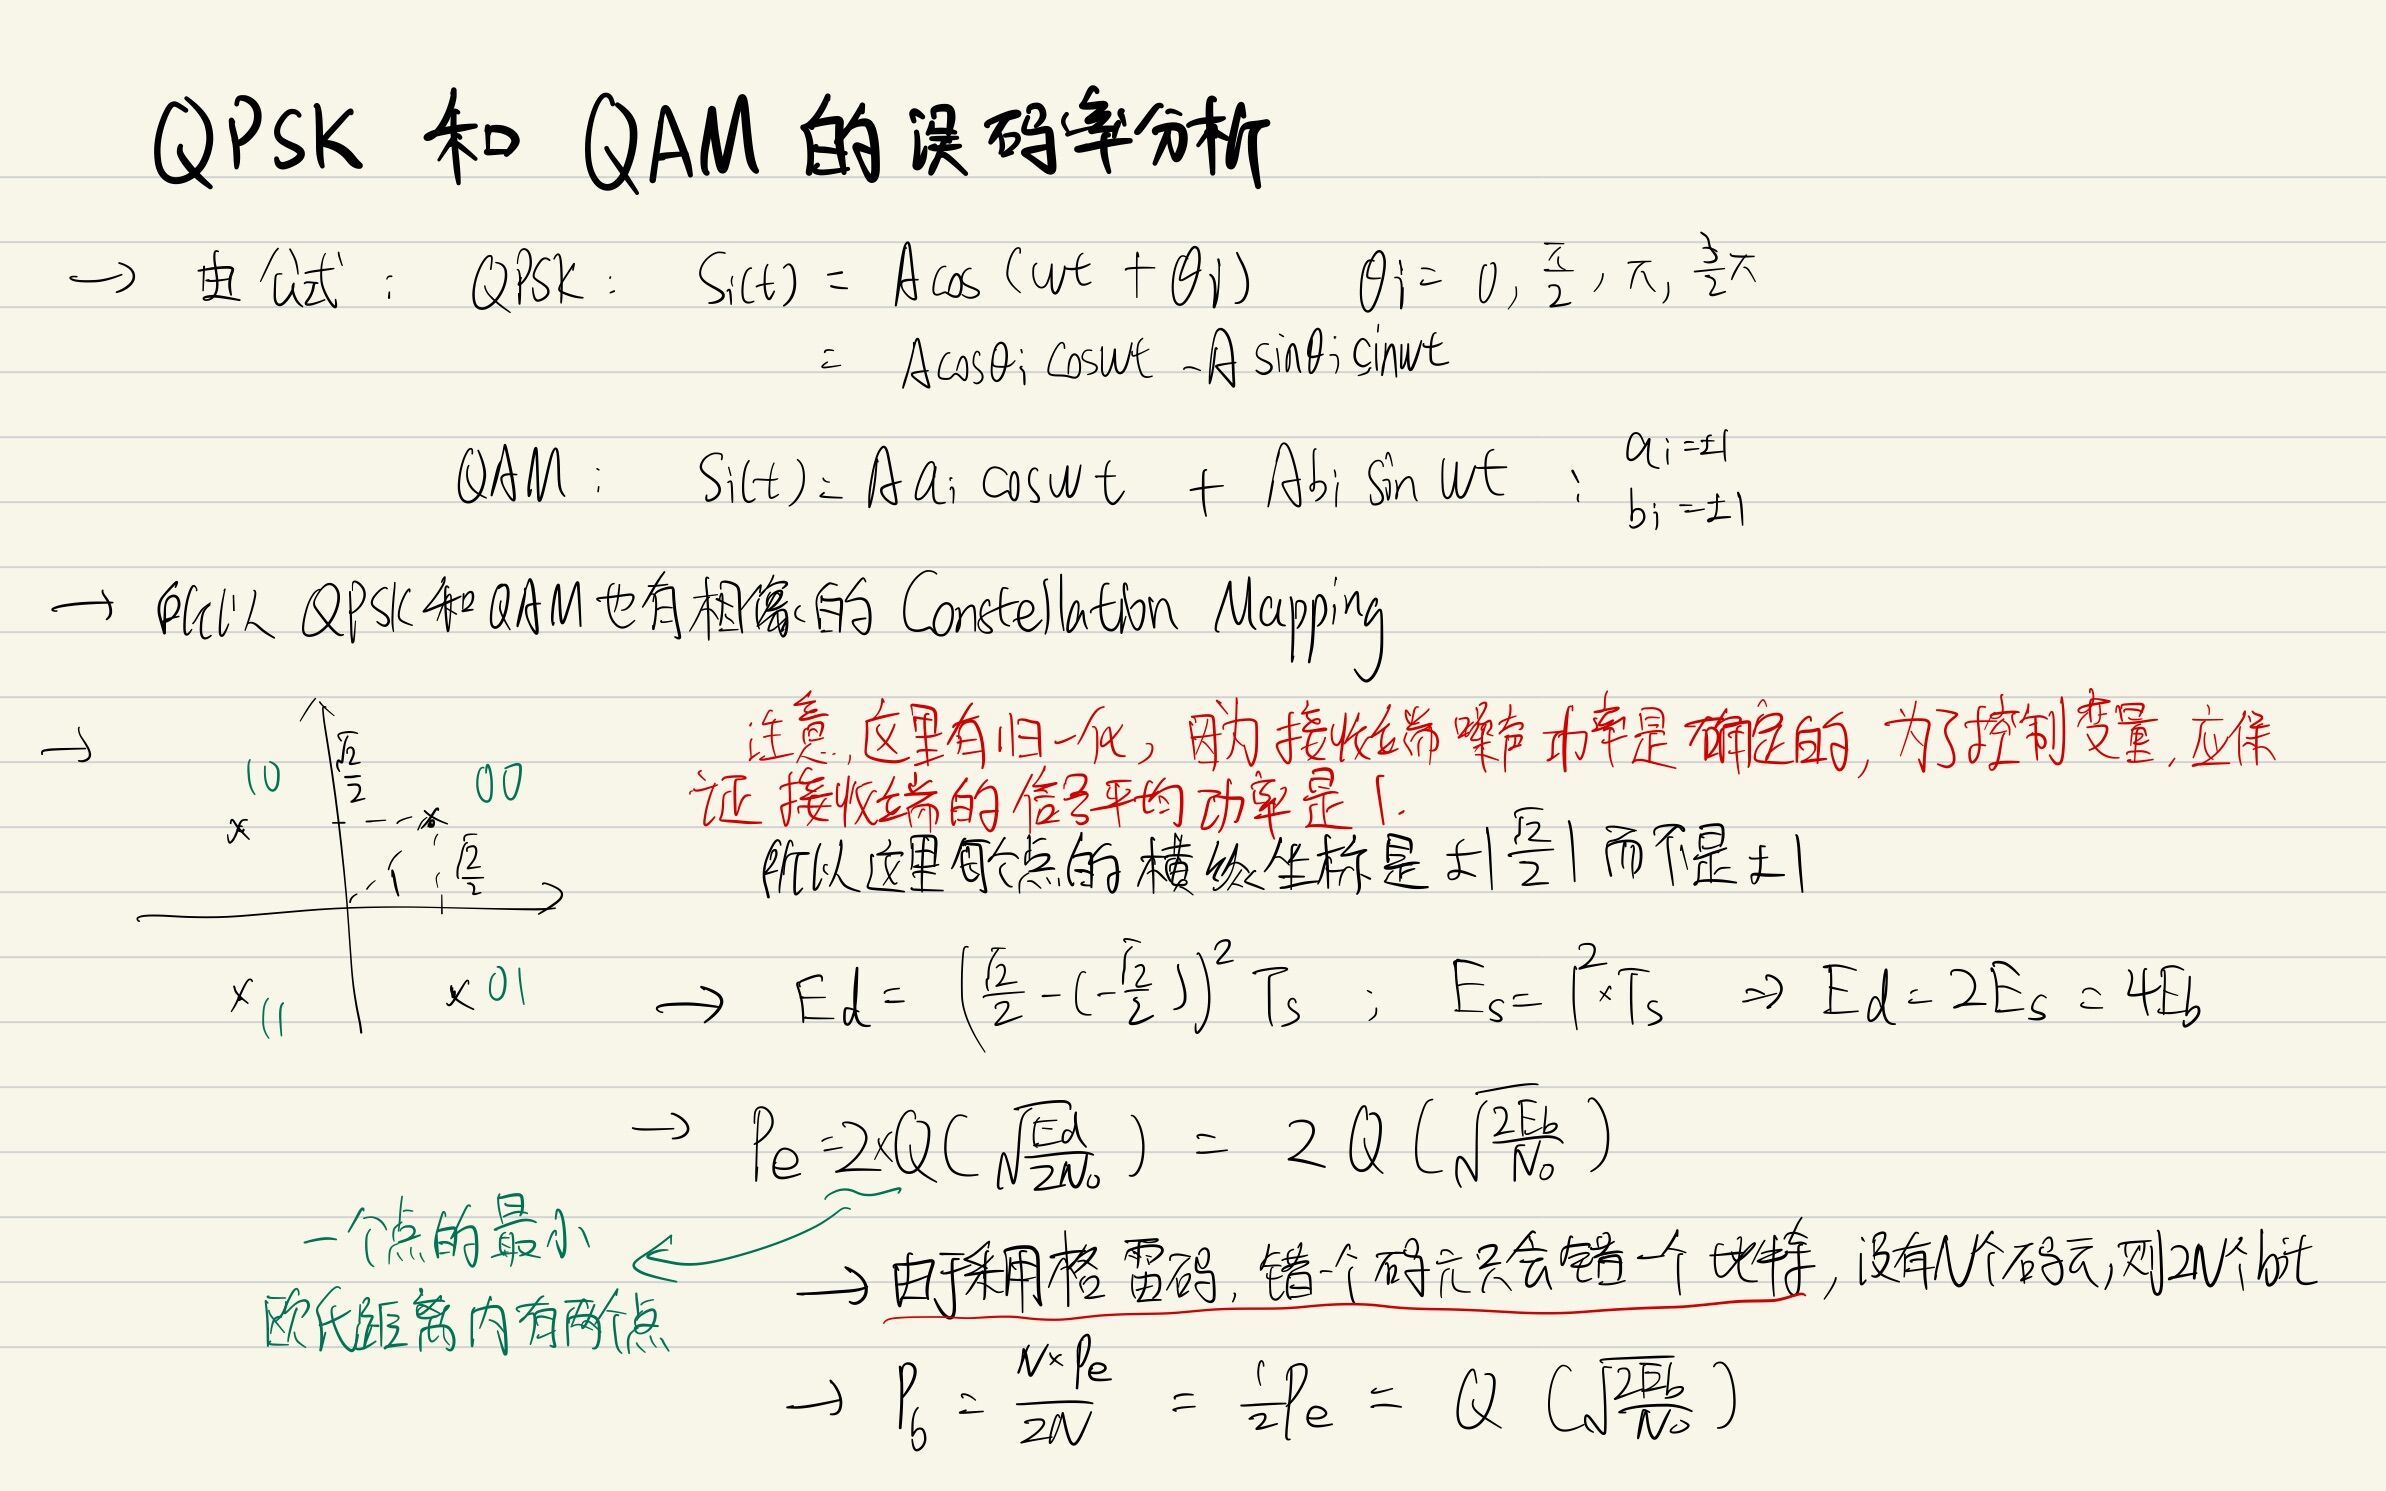 QPSK 和 QAM 的误码率分析
→ 由公式: QPSK: Si(t) = A cos (wt + θi) θi = 0, π/2, π, 3/2π
= A cosθi coswt - A sinθi sinwt
QAM: Si(t) = A ai coswt + A bi sin wt ; ai = ±1
bi = ±1
→ 所以 QPSK 和 QAM 也有相像的 Constellation Mapping
→
10 √2/2 00
1 √2/2
11 01
注意,这里有归一化, 因为接收端噪声功率是确定的, 为了控制变量, 应保
证接收端的信号平均功率是 1.
所以这里每个点的横纵坐标是 ±|√2/2| 而不是 ±1
→ Ed = (√2/2 - (-√2/2))² Ts ; Es = 1² × Ts ⇒ Ed = 2Es = 4Eb
→ Pe = 2×Q(√(Ed/2N₀)) = 2Q(√(2Eb/N₀))
一个点的最小
欧氏距离内有两个点
→ 由于采用格雷码, 错一个码元只会错一个比特, 没有N个码云, 则2N个bit
→ Pb = N×Pe/2N = 1/2 Pe = Q(√(2Eb/N₀))